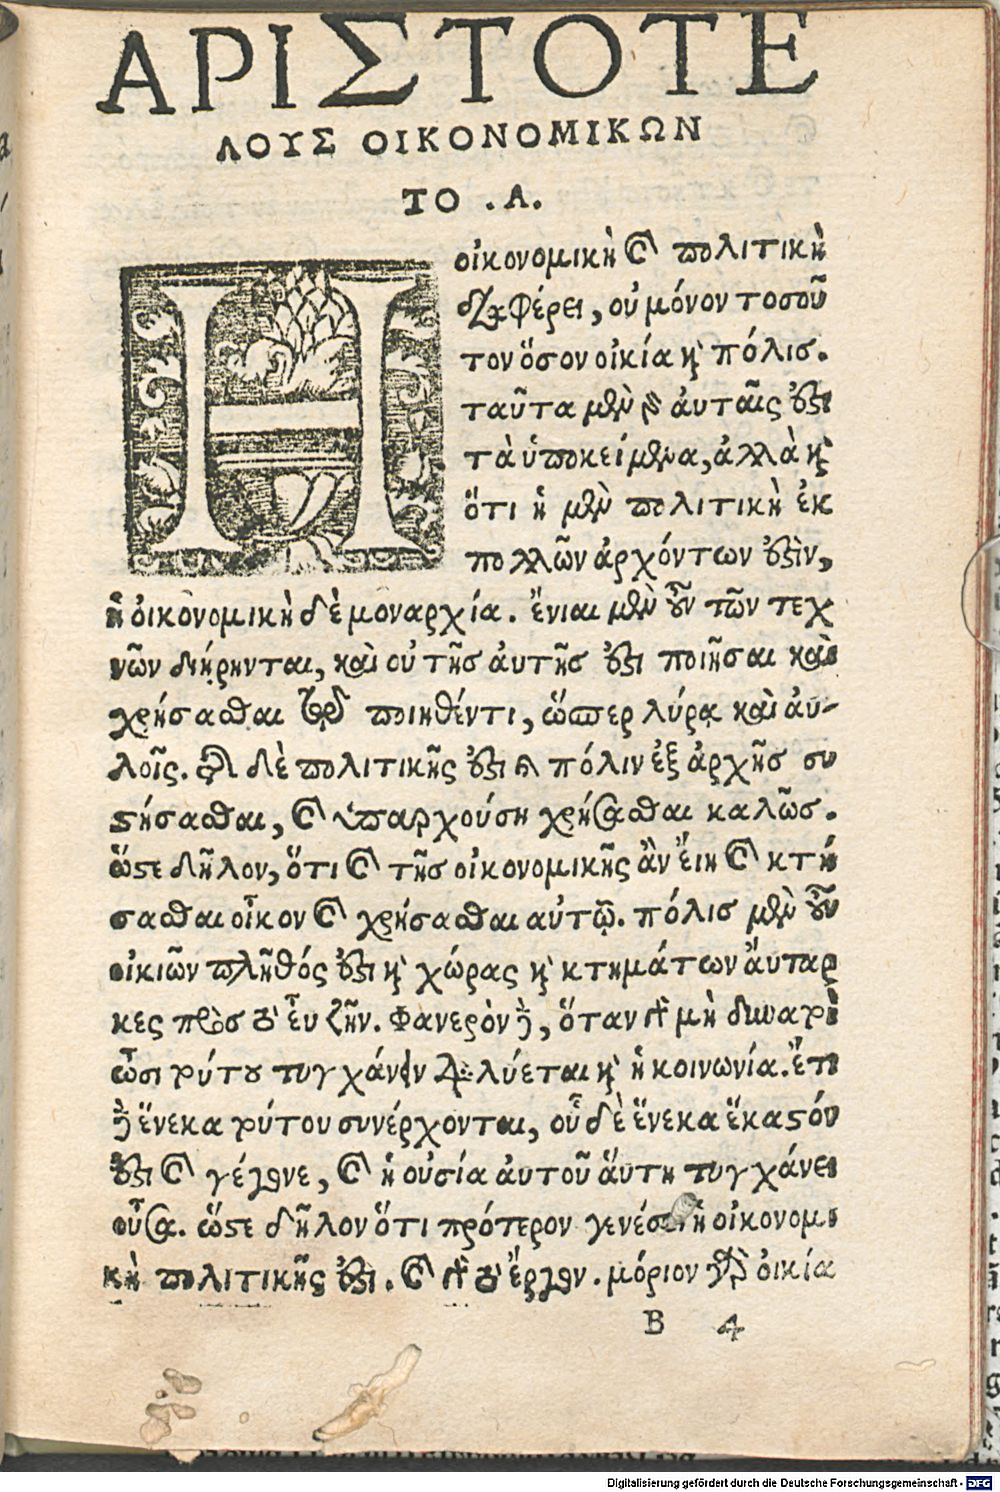 ΑΡΙΣΤΟΤΕ
ΛΟΥΣ ΟΙΚΟΝΟΜΙΚΩΝ
ΤΟ .Α.
Η οἰκονομικὴ καὶ πολιτικὴ
διαφέρει, οὐ μόνον τοσοῦ
τον ὅσον οἰκία καὶ πόλις.
ταῦτα μὲν γὰρ ἀυταῖς ἐστι
τὰ ὑποκείμενα, ἀλλὰ καὶ
ὅτι ἡ μὲν πολιτικὴ ἐκ
πολλῶν ἀρχόντων ἐστὶν,
ἡ οἰκονομικὴ δὲ μοναρχία. ἔνιαι μὲν οὖν τῶν τεχ
νῶν διῄρηνται, καὶ οὐ τῆς ἀυτῆς ἐστι ποιῆσαι καὶ
χρήσασθαι τῷ ποιηθέντι, ὥσπερ λύρᾳ καὶ ἀυ-
λοῖς. τῆς δὲ πολιτικῆς ἐστι καὶ πόλιν ἐξ ἀρχῆς συ
στήσασθαι, καὶ ὑπαρχούσῃ χρήσασθαι καλῶς.
ὥστε δῆλον, ὅτι καὶ τῆς οἰκονομικῆς ἂν ἔιη καὶ κτή
σασθαι οἶκον καὶ χρήσασθαι αὐτῷ. πόλις μὲν οὖν
οἰκιῶν πλῆθός ἐστι καὶ χώρας καὶ κτημάτων ἄυταρ
κες πρὸς τὸ εὖ ζῆν. Φανερὸν δὲ, ὅταν γὰρ μὴ δυναροὶ
ὦσι τούτου τυγχάνειν διαλύεται καὶ ἡ κοινωνία. ἔτι
δὲ ἕνεκα τούτου συνέρχονται, οὗ δὲ ἕνεκα ἕκαστόν
ἐστι καὶ γέγονε, καὶ ἡ οὐσία ἀυτοῦ ἅυτη τυγχάνει
οὖσα. ὥστε δῆλον ὅτι πρότερον γενέσει ἡ οἰκονομι
κὴ πολιτικῆς ἐστι. καὶ γὰρ τὸ ἔργον. μόριον γὰρ οἰκία
B 4
Digitalisierung gefördert durch die Deutsche Forschungsgemeinschaft - DFG